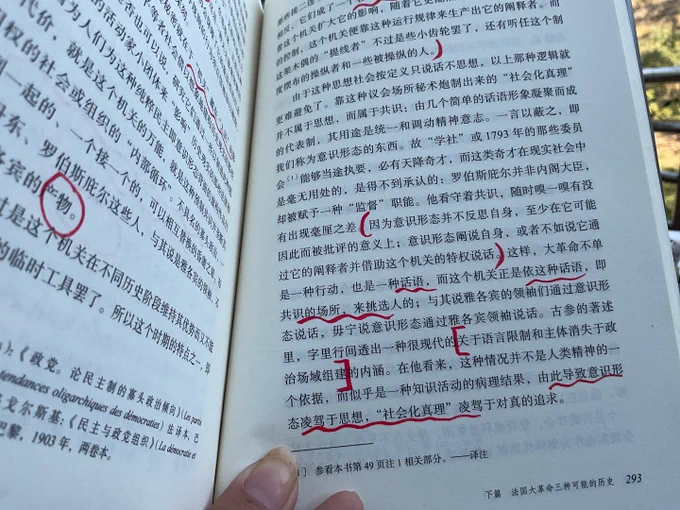 代价，就是这个机关的万能，就是这种
的活动家小团体来“影响
因为人们为这种纯粹民主即
权的社会或组织的“内部循环”
到一起的，一个接一个的，可以相互替换的
丹东、罗伯斯庇尔这些人，与其说是雅各宾的
各宾的产物。
过是这个机关在不同历史阶段维持其优势而又不能
的临时工具罢了。所以这个时期的特点之一，即
》；《政党。论民主制的寡头政治倾向》(Les partis
tendances oligarchiques des démocraties) 法译本，巴
戈尔斯基：《民主与政党组织》(La démocratie et
巴黎，1903年，两卷本。
反，它们成了一个
靠这个机关扩大它的影响，随着它更
的控制，这个机关便靠这种运行规律来生产出它的阐释者。而
这架木偶的“提线者”不过是些小齿轮罢了，还有听任这个制
度摆布的操纵者和一些被操纵的人。
由于这种思想社会按定义只说话不思想，以上那种逻辑就
更难避免了。靠这种议会场所秘术炮制出来的“社会化真理”
并不属于思想，而属于共识；由几个简单的话语形象凝聚而成
的代表制，其用途是统一和调动精神意志。一言以蔽之，即
我们称为意识形态的东西。故“学社”或1793年的那些委员
会〔1〕能够当途执要，必有天降奇才，而这类奇才在现实社会中
是毫无用处的，是得不到承认的：罗伯斯庇尔并非内阁大臣，
却被赋予一种“监督”职能。他看守着共识，随时嗅一嗅有没
有出现毫厘之差（因为意识形态并不反思自身，至少在它可能
因此而被批评的意义上；意识形态阐说自身，或者不如说它通
过它的阐释者并借助这个机关的特权说话）。这样，大革命不单
是一种行动，也是一种话语，而这个机关正是依这种话语，即
共识的场所，来挑选人的；与其说雅各宾的领袖们通过意识形
态说话，毋宁说意识形态通过雅各宾领袖说话。古参的著述
里，字里行间透出一种很现代的关于语言限制和主体消失于政
治场域组建的内涵。在他看来，这种情况并不是人类精神的一
个依据，而似乎是一种知识活动的病理结果，由此导致意识形
态凌驾于思想，“社会化真理”凌驾于对真的追求。
〕 参看本书第49页注1相关部分。——译注
下篇 法国大革命三种可能的历史 293